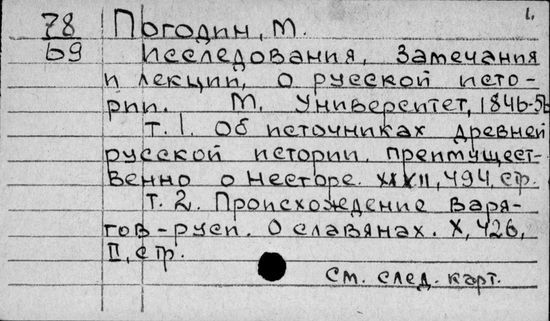 1.
78 Погодин, М.
69 исследования, замечания
и лекции, о русской исто-
рии. М. Университет, 1846-56
т. 1. Об источниках древней
русской истории. преимущест-
венно о Несторе. 494, стр.
т. 2. Происхождение варя-
гов-руси. О славянах. X, 426,
II, стр.
см. след. карт.